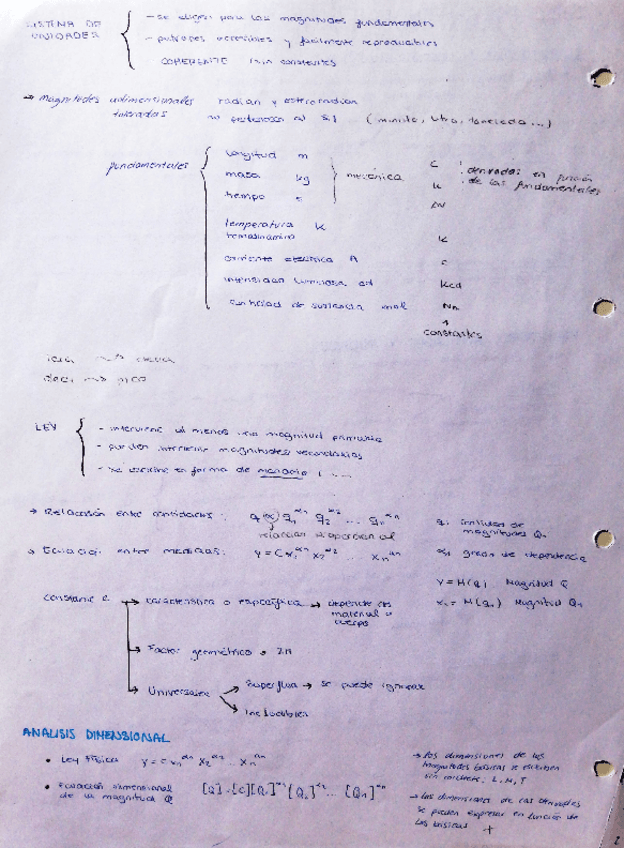 SISTEMA DE UNIDADES
- se eligen para las magnitudes fundamentales
- patrones accesibles y fácilmente reproducibles
COHERENTE sin constantes
→ magnitudes adimensionales radian y estereorradian
toleradas no pertenecen al SI (minuto, litro, tonelada...)
fundamentales
longitud m
masa kg
tiempo s
mecánica
temperatura K
termodinámica
corriente eléctrica A
intensidad luminosa cd
cantidad de sustancia mol
c
h
K
Kcd
constantes
derivadas en función
de las fundamentales
LEY
- interviene al menos una magnitud primaria
- pueden intervenir magnitudes secundarias
- se escribe en forma de
→ Relación entre cantidades: q ∝ q₁^α₁ q₂^α₂ ... qₙ^αₙ
relación proporcional
→ Ecuación entre medidas: y = C x₁^α₁ x₂^α₂ ... xₙ^αₙ
de
magnitudes Qₙ
grado de dependencia
y = M(q) Magnitud Q
Magnitud Qₙ
Constante C
característica o específica → depende del
material o
cuerpo
Factor geométrico
Universales
Superflua → se puede ignorar
Ineludibles
ANALISIS DIMENSIONAL
• Ley Física y = C x₁^α₁ x₂^α₂ ... xₙ^αₙ
• Ecuación dimensional
de la magnitud Q
[Q] = [C][Q₁]^α₁ [Q₂]^α₂ ... [Qₙ]^αₙ
→ Las dimensiones de las
magnitudes básicas se escriben
sin corchete: L, M, T
→ las dimensiones de las derivadas
se pueden expresar en función de
las básicas